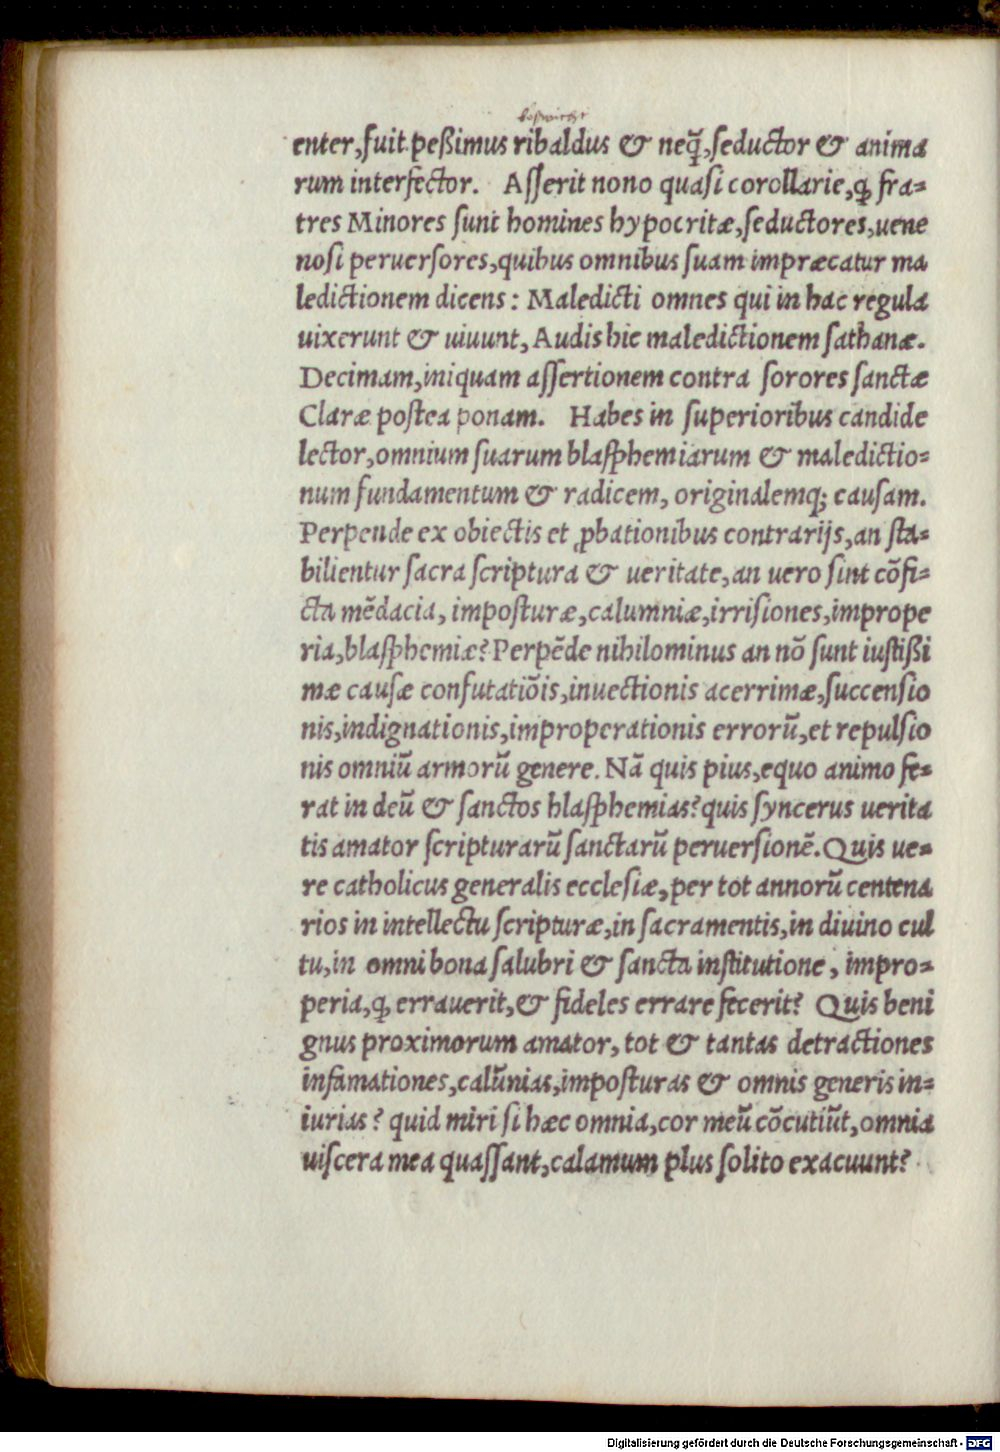 boßwicht
enter,fuit peßimus ribaldus & neq̃,ſeductor & anima
rum interfector. Aſſerit nono quaſi corollarie,ꝙ fra=
tres Minores ſunt homines hypocritæ,ſeductores,uene
noſi peruerſores,quibus omnibus ſuam impræcatur ma
ledictionem dicens: Maledicti omnes qui in hac regula
uixerunt & uiuunt, Audis hic maledictionem ſathanæ.
Decimam,iniquam aſſertionem contra ſorores ſanctæ
Claræ poſtea ponam. Habes in ſuperioribus candide
lector,omnium ſuarum blaſphemiarum & maledictio=
num fundamentum & radicem, originalemq; cauſam.
Perpende ex obiectis et ꝓbationibus contrarijs,an ſta=
bilientur ſacra ſcriptura & ueritate,an uero ſint cõfi=
cta mẽdacia, impoſturæ,calumniæ,irriſiones,imprope
ria,blaſphemiæ?Perpẽde nihilominus an nõ ſunt iuſtißi
mæ cauſæ confutatiõis,inuectionis acerrimæ,ſuccenſio
nis,indignationis,improperationis errorũ,et repulſio
nis omniũ armorũ genere. Nã quis pius,equo animo fe=
rat in deũ & ſanctos blaſphemias?quis ſyncerus uerita
tis amator ſcripturarũ ſanctarũ peruerſionẽ.Quis ue=
re catholicus generalis eccleſiæ,per tot annorũ centena
rios in intellectu ſcripturæ,in ſacramentis,in diuino cul
tu,in omni bona ſalubri & ſancta inſtitutione, impro=
peria,ꝙ errauerit,& fideles errare fecerit? Quis beni
gnus proximorum amator, tot & tantas detractiones
infamationes,calũnias,impoſturas & omnis generis in=
iurias? quid miri ſi hæc omnia,cor meũ cõcutiũt,omnia
uiſcera mea quaſſant,calamum plus ſolito exacuunt?
Digitalisierung gefördert durch die Deutsche Forschungsgemeinschaft - DFG